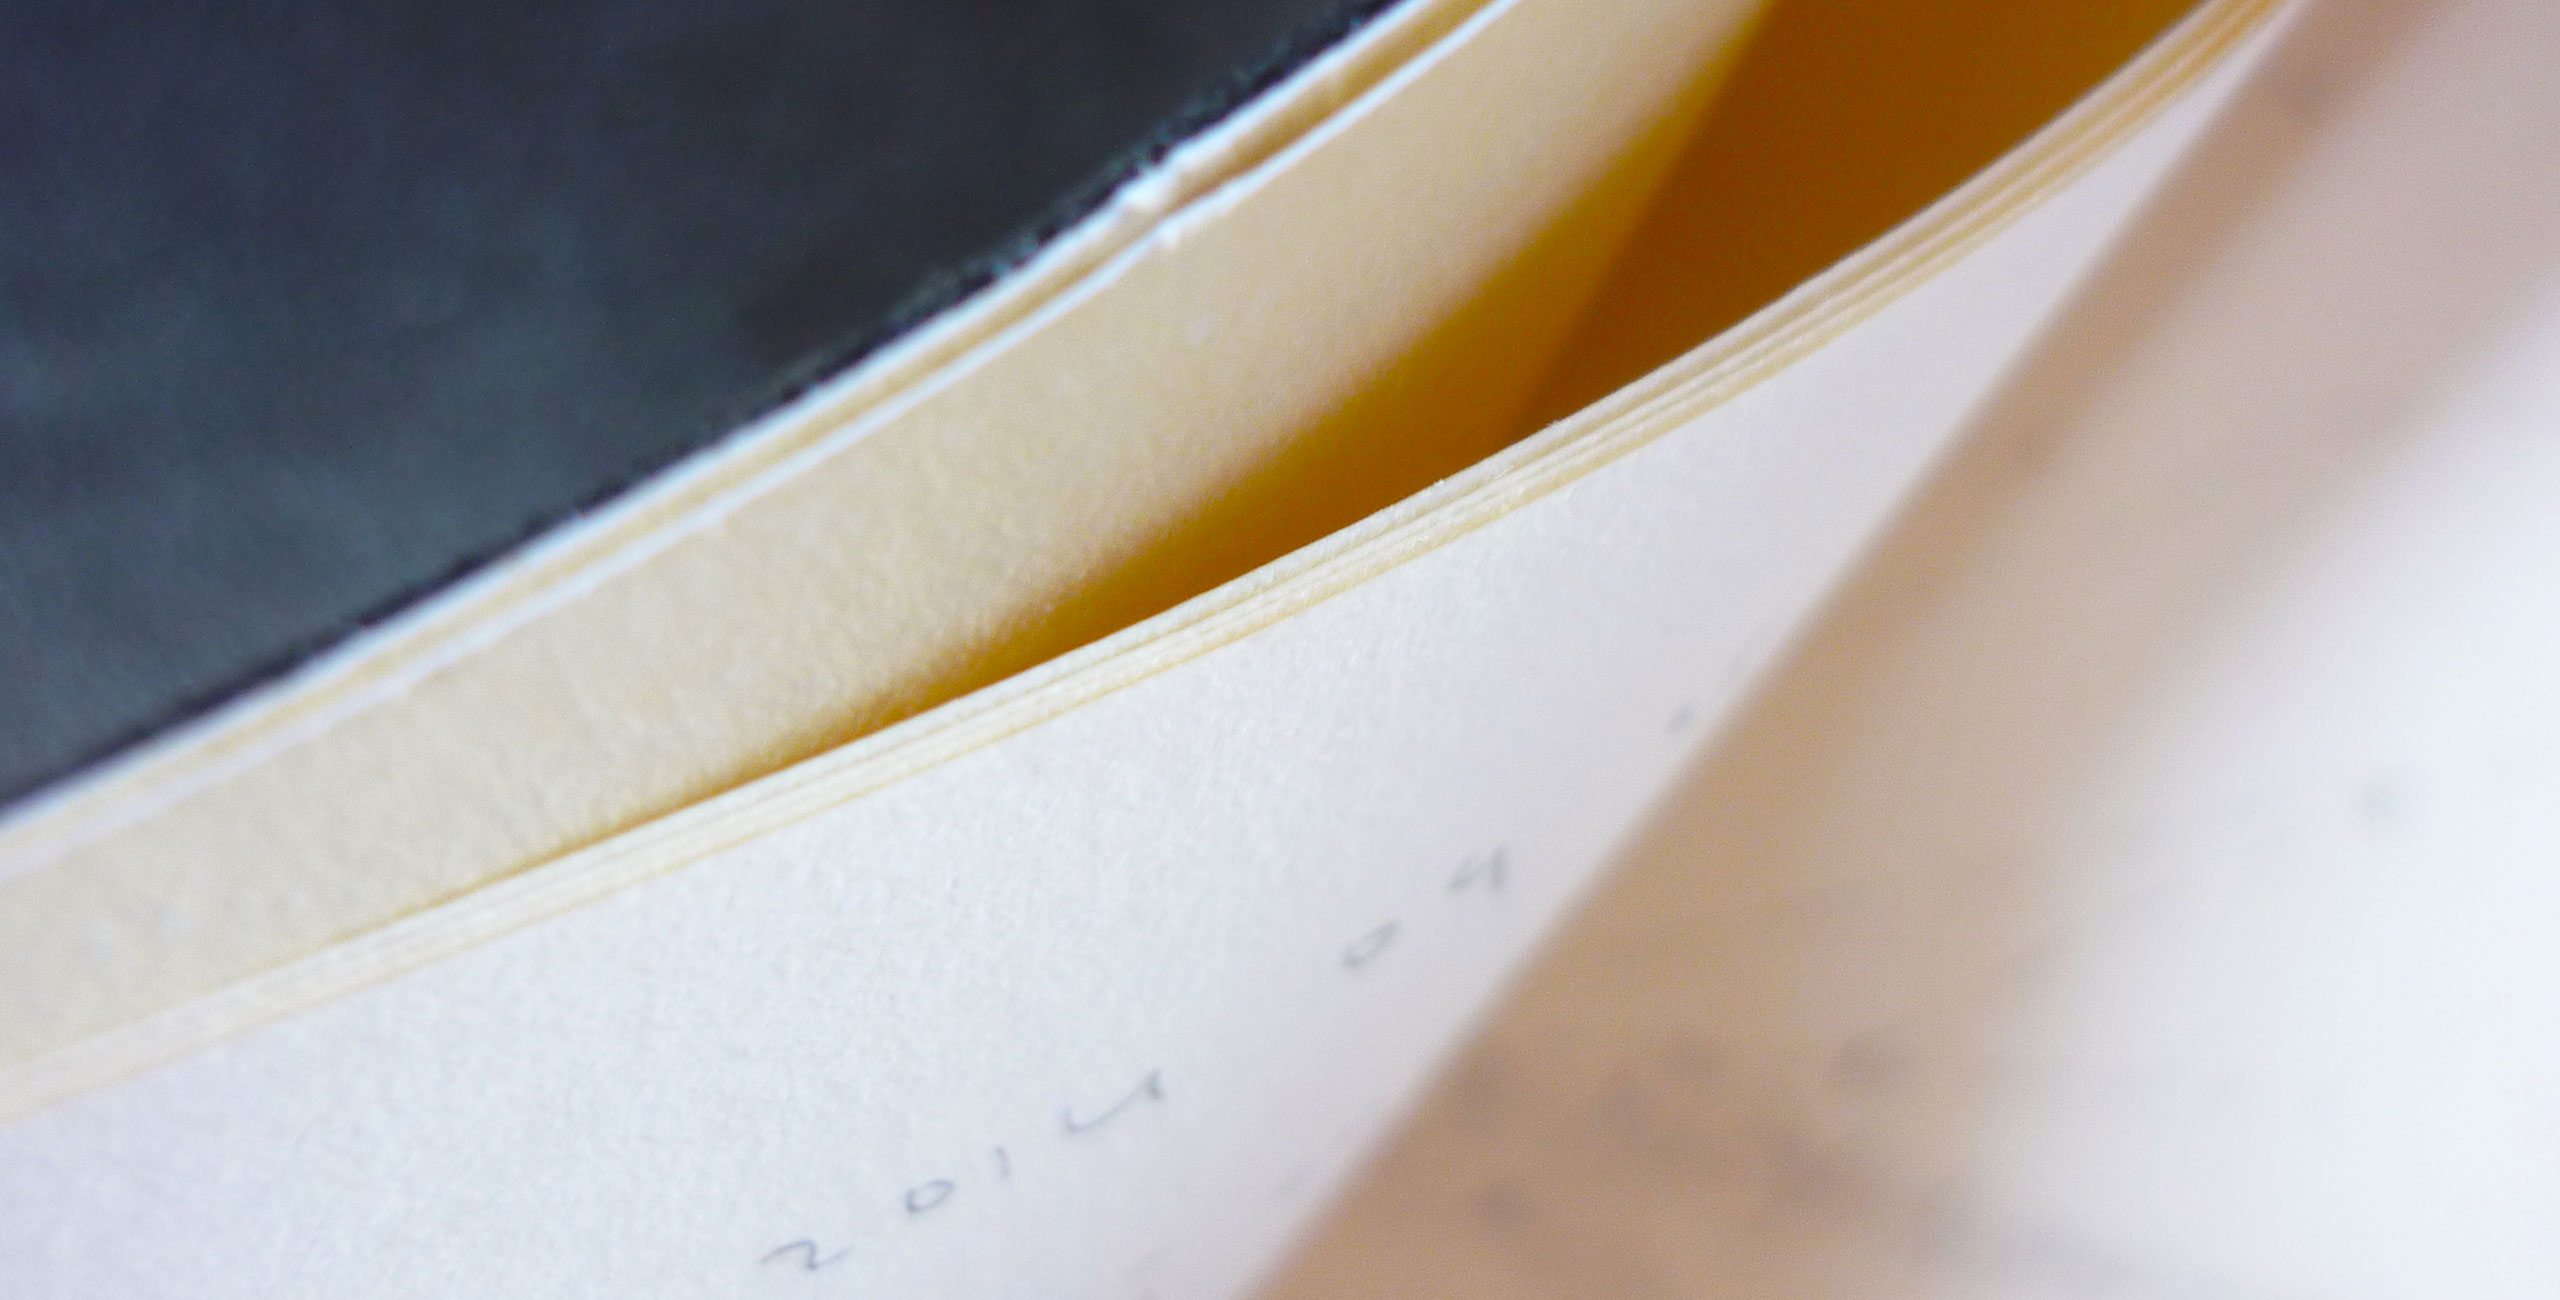 2014 04